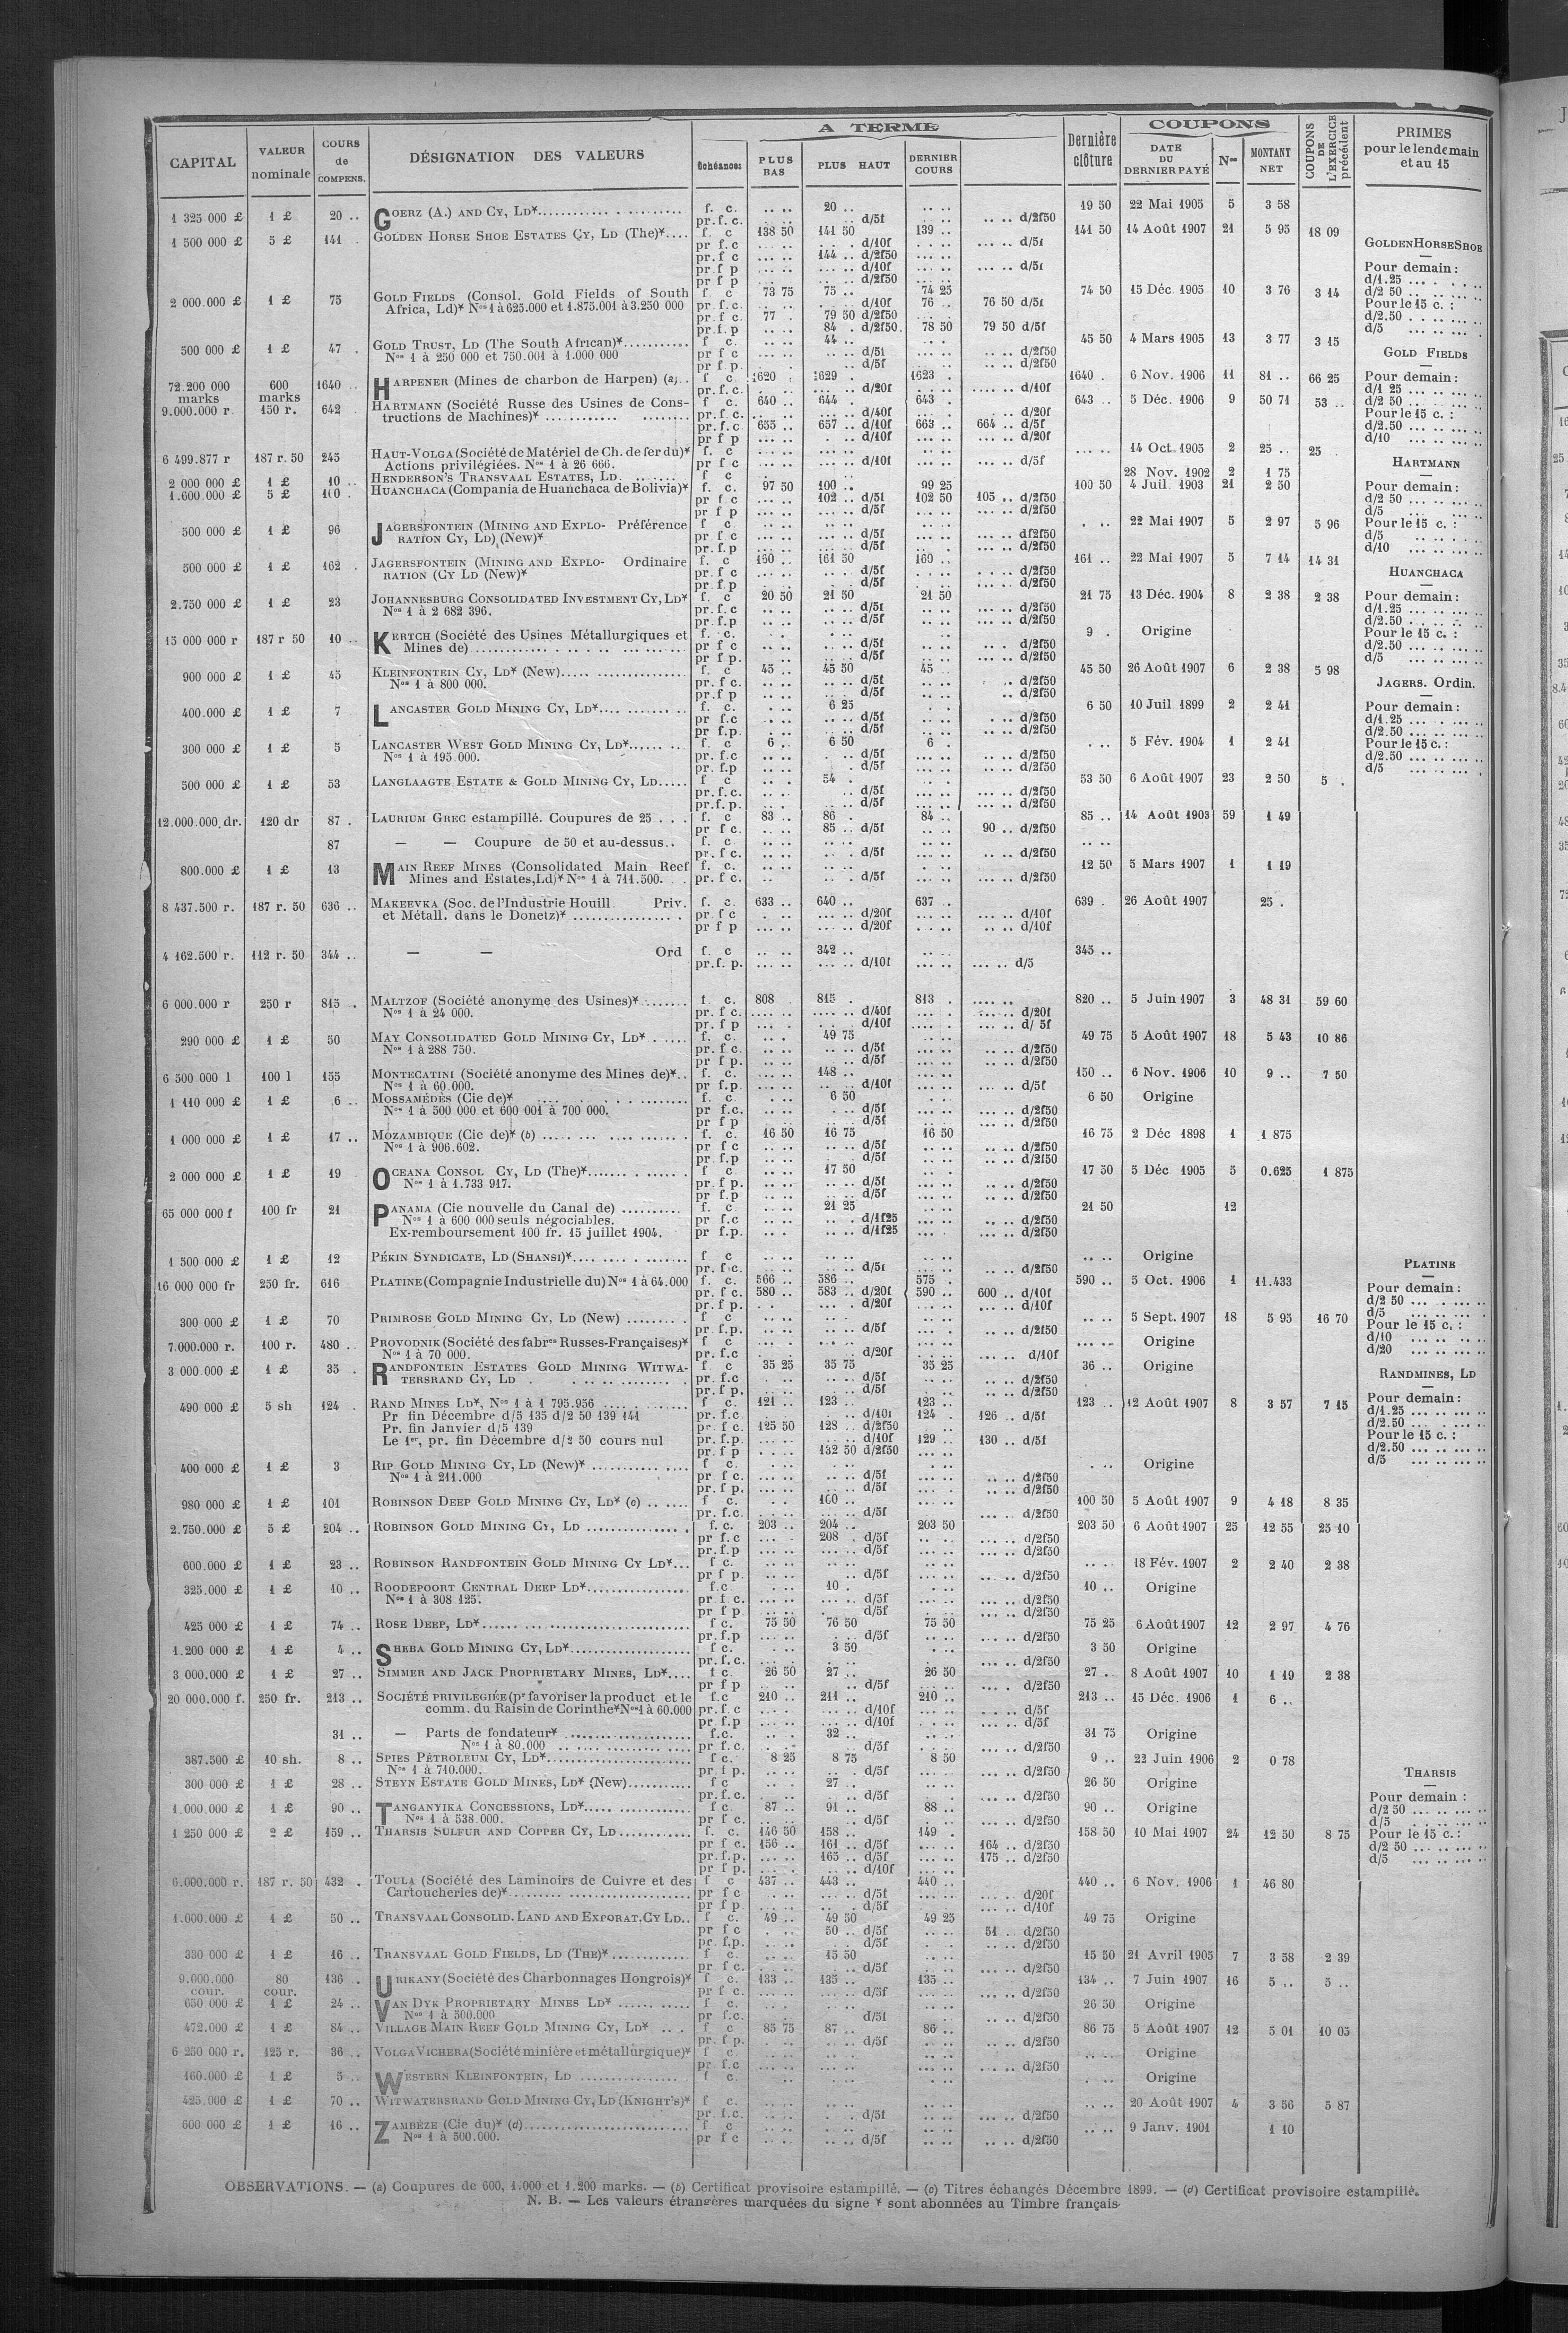 CAPITAL | VALEUR nominale | COURS de COMPENS. | DÉSIGNATION DES VALEURS | A TERME | Échéances | PLUS BAS | PLUS HAUT | DERNIER COURS | Dernière clôture | COUPONS | DATE DU DERNIER PAYÉ | Nos | MONTANT NET | COUPONS DE L'EXERCICE précédent | PRIMES pour le lendemain et au 15
1 325 000 £ 1 £ 20 .. GOERZ (A.) AND CY, LD* f. c. 20 .. 19 50 22 Mai 1905 5 3 58
pr. f. c. d/5f d/2f50
1 500 000 £ 5 £ 141 . GOLDEN HORSE SHOE ESTATES CY, LD (The)* f. c 138 50 141 50 139 .. 141 50 14 Août 1907 21 5 95 18 09
pr f. c d/10f d/5f
pr f c 144 .. d/2f50
pr f p d/10f d/5f
pr f p d/2f50
2 000.000 £ 1 £ 75 GOLD FIELDS (Consol. Gold Fields of South f c 73 75 75 .. 74 25 74 50 15 Déc 1905 10 3 76 3 14
Africa, Ld)* Nos 1 à 625.000 et 1.875.001 à 3.250 000 pr f. c. d/10f 76 . 76 50 d/5f
pr f c. 77 . 79 50 d/2f50
pr. f. p 84 . d/2f50 78 50 79 50 d/5f
500 000 £ 1 £ 47 . GOLD TRUST, LD (The South African)* f c. 44 .. 45 50 4 Mars 1905 13 3 77 3 15
Nos 1 à 250 000 et 750.001 à 1.000 000 pr f c d/5f d/2f50
pr f p. d/5f d/2f50
72.200 000 marks 600 marks 1640 .. HARPENER (Mines de charbon de Harpen) (a) f c. 1620 . 1629 . 1623 . 1640 . 6 Nov. 1906 11 81 .. 66 25
pr. f. c. d/20f d/10f
9.000.000 r. 150 r. 642 . HARTMANN (Société Russe des Usines de Cons- f c 640 .. 644 . 643 . 643 .. 5 Déc. 1906 9 50 71 53 ..
tructions de Machines)* pr. f. c. d/40f d/20f
pr. f. c 655 .. 657 .. d/10f 663 .. 664 .. d/5f
pr f p d/10f d/20f
6 499.877 r 187 r. 50 245 HAUT-VOLGA (Société de Matériel de Ch. de fer du)* f. c 14 Oct. 1905 2 25 .. 25
Actions privilégiées. Nos 1 à 26 666. pr f c d/10f d/5f
2 000 000 £ 1 £ 10 .. HENDERSON'S TRANSVAAL ESTATES, LD. f c 28 Nov. 1902 2 1 75
1.600.000 £ 5 £ 100 . HUANCHACA (Compania de Huanchaca de Bolivia)* f. c. 97 50 100 .. 99 25 100 50 4 Juil. 1903 21 2 50
pr f c 102 .. d/5f 102 50 105 .. d/2f50
pr f p d/5f d/2f50
500 000 £ 1 £ 96 JAGERSFONTEIN (MINING AND EXPLO- Préférence f c 22 Mai 1907 5 2 97 5 96
RATION CY, LD) (New)* pr f c d/5f d/2f50
pr. f. p d/5f d/2f50
500 000 £ 1 £ 162 . JAGERSFONTEIN (MINING AND EXPLO- Ordinaire f. c 160 .. 161 50 160 .. 161 .. 22 Mai 1907 5 7 14 14 31
RATION (CY LD (New)* pr. f c d/5f d/2f50
pr f p d/5f d/2f50
2.750 000 £ 1 £ 23 JOHANNESBURG CONSOLIDATED INVESTMENT CY, LD* f. c 20 50 21 50 21 50 21 75 13 Déc. 1904 8 2 38 2 38
Nos 1 à 2 682 396. pr. f. c d/5f d/2f50
pr. f. p d/5f d/2f50
15 000 000 r 187 r 50 10 .. KERTCH (Société des Usines Métallurgiques et f. c. 9 . Origine
Mines de) pr f c d/5f d/2f50
pr f p. d/5f d/2f50
900 000 £ 1 £ 45 KLEINFONTEIN CY, LD* (New) f. c 45 .. 45 50 45 .. 45 50 26 Août 1907 6 2 38 5 98
Nos 1 à 800 000. pr f c. d/5f d/2f50
pr. f p d/5f d/2f50
400.000 £ 1 £ 7 LANCASTER GOLD MINING CY, LD* f. c. 6 25 6 50 10 Juil 1899 2 2 41
pr f.c d/5f d/2f50
pr f.p. d/5f d/2f50
300 000 £ 1 £ 5 LANCASTER WEST GOLD MINING CY, LD* f. c 6 .. 6 50 6 . 5 Fév. 1904 1 2 41
Nos 1 à 195.000. pr. f.c d/5f d/2f50
pr. f.p d/5f d/2f50
500 000 £ 1 £ 53 LANGLAAGTE ESTATE & GOLD MINING CY, LD f c 54 . 53 50 6 Août 1907 23 2 50 5 .
pr. f. c. d/5f d/2f50
pr. f. p. d/5f d/2f50
12.000.000 dr. 120 dr 87 . LAURIUM GREC estampillé. Coupures de 25 f. c 83 .. 86 . 84 .. 85 .. 14 Août 1903 59 1 49
pr f c. 85 .. d/5f 90 .. d/2f50
87 — — Coupure de 50 et au-dessus f. c
pr. f c. d/5f d/2f50
800.000 £ 1 £ 13 MAIN REEF MINES (Consolidated Main Reef f. c. 12 50 5 Mars 1907 1 1 19
Mines and Estates, Ld)* Nos 1 à 711.500. pr. f c. d/5f d/2f50
8 437.500 r. 187 r. 50 636 .. MAKEEVKA (Soc. de l'Industrie Houill. Priv. f. c. 633 .. 640 .. 637 . 639 . 26 Août 1907 25 .
et Métall. dans le Donetz)* pr f c d/20f d/10f
pr f p d/20f d/10f
4 162.500 r. 112 r. 50 344 .. — — Ord f. c 342 .. 345 ..
pr. f. p. d/10f d/5
6 000.000 r 250 r 815 . MALTZOF (Société anonyme des Usines)* f c. 808 815 . 813 . 820 .. 5 Juin 1907 3 48 31 59 60
Nos 1 à 24 000. pr. f c. d/40f d/20f
pr f p d/10f d/ 5f
290 000 £ 1 £ 50 MAY CONSOLIDATED GOLD MINING CY, LD* f. c. 49 75 49 75 5 Août 1907 18 5 43 10 86
Nos 1 à 288 750. pr. f c. d/5f d/2f50
pr f p. d/5f d/2f50
6 500 000 l 100 l 155 MONTECATINI (Société anonyme des Mines de)* f. c. 148 .. 150 .. 6 Nov. 1906 10 9 .. 7 50
Nos 1 à 60.000. pr f.p. d/10f d/5f
1 110 000 £ 1 £ 6 .. MOSSAMÉDÈS (Cie de)* f. c 6 50 6 50 Origine
Nos 1 à 500 000 et 600 001 à 700 000. pr f.c. d/5f d/2f50
pr f p d/5f d/2f50
1 000 000 £ 1 £ 17 .. MOZAMBIQUE (Cie de)* (b) f. c. 16 50 16 75 16 50 16 75 2 Déc 1898 1 1 875
Nos 1 à 906.602. pr f c d/5f d/2f50
pr. f.p d/5f d/2f50
2 000 000 £ 1 £ 19 OCEANA CONSOL CY, LD (The)* f c 17 50 17 50 5 Déc 1905 5 0.625 1 875
Nos 1 à 1.733 917. pr f p. d/5f d/2f50
pr f.p d/5f d/2f50
65 000 000 f 100 fr 21 PANAMA (Cie nouvelle du Canal de) f. c 21 25 21 50 12
Nos 1 à 600 000 seuls négociables. pr f.c d/1f25 d/2f50
Ex-remboursement 100 fr. 15 juillet 1904. pr f.p. d/1f25 d/2f50
1 500 000 £ 1 £ 12 PÉKIN SYNDICATE, LD (SHANSI)* f c Origine
pr. f. c. d/5f d/2f50
16 000 000 fr 250 fr. 616 PLATINE (Compagnie Industrielle du) Nos 1 à 64.000 f. c. 566 .. 586 .. 575 . 590 .. 5 Oct. 1906 1 11.433
pr. f c. 580 .. 583 .. d/20f 590 .. 600 .. d/10f
pr. f p. d/20f d/10f
300 000 £ 1 £ 70 PRIMROSE GOLD MINING CY, LD (New) f c 5 Sept. 1907 18 5 95 16 70
pr f.p. d/5f d/2f50
7.000.000 r. 100 r. 480 .. PROVODNIK (Société des fabres Russes-Françaises)* f c Origine
Nos 1 à 70 000. pr. f.c d/20f d/10f
3 000 000 £ 1 £ 35 . RANDFONTEIN ESTATES GOLD MINING WITWA- f c 35 25 35 75 35 25 36 .. Origine
TERSRAND CY, LD pr. f.c d/5f d/2f50
pr. f p. d/5f d/2f50
490 000 £ 5 sh 124 . RAND MINES LD*, Nos 1 à 1 795.956 f c. 121 .. 123 .. 123 .. 123 .. 12 Août 1907 8 3 57 7 15
Pr fin Décembre d/5 135 d/2 50 139 141 pr. f.c. d/10f 124 . 126 .. d/5f
Pr. fin Janvier d/5 139 pr. f c. 125 50 128 .. d/2f50
Le 1er, pr. fin Décembre d/2 50 cours nul pr. f.p. d/10f 129 .. 130 .. d/5f
pr f p 132 50 d/2f50
400 000 £ 1 £ 3 RIP GOLD MINING CY, LD (New)* f c. Origine
Nos 1 à 211.000 pr f c. d/5f d/2f50
pr. f p. d/5f d/2f50
980 000 £ 1 £ 101 ROBINSON DEEP GOLD MINING CY, LD* (c) f c. 100 .. 100 50 5 Août 1907 9 4 18 8 35
pr. f.c. d/5f d/2f50
2.750.000 £ 5 £ 204 .. ROBINSON GOLD MINING CY, LD f. c. 203 .. 204 .. 203 50 203 50 6 Août 1907 25 12 55 25 10
pr f. c 208 . d/5f d/2f50
pr. f.p d/5f d/2f50
600.000 £ 1 £ 23 .. ROBINSON RANDFONTEIN GOLD MINING CY LD* f c. 18 Fév. 1907 2 2 40 2 38
pr f p. d/5f d/2f50
325.000 £ 1 £ 10 .. ROODEPOORT CENTRAL DEEP LD* f.c 10 . 10 .. Origine
Nos 1 à 308 125. pr f c. d/5f d/2f50
pr f p d/5f d/2f50
425 000 £ 1 £ 74 .. ROSE DEEP, LD* f c. 75 50 76 50 75 50 75 25 6 Août 1907 12 2 97 4 76
pr. f.p d/5f d/2f50
1.200 000 £ 1 £ 4 .. SHEBA GOLD MINING CY, LD* f c. 3 50 3 50 Origine
pr. f. c. d/2f50
3 000.000 £ 1 £ 27 .. SIMMER AND JACK PROPRIETARY MINES, LD* f c. 26 50 27 .. 26 50 27 .. 8 Août 1907 10 1 19 2 38
pr f p d/5f d/2f50
20 000.000 f. 250 fr. 213 .. SOCIÉTÉ PRIVILEGIÉE (pr favoriser la product et le f.c 210 .. 211 .. 210 .. 213 .. 15 Déc. 1906 1 6 ..
comm. du Raisin de Corinthe* Nos 1 à 60.000 pr. f. c d/10f d/5f
pr. f.p d/10f d/5f
31 .. — Parts de fondateur* f.c. 32 .. 31 75 Origine
Nos 1 à 80.000 pr f. c. d/5f d/2f50
387.500 £ 10 sh. 8 .. SPIES PÉTROLEUM CY, LD* f c. 8 25 8 75 8 50 9 .. 22 Juin 1906 2 0 78
Nos 1 à 710.000. pr. f p. d/5f d/2f50
300 000 £ 1 £ 28 .. STEYN ESTATE GOLD MINES, LD* (New) f c 27 .. 26 50 Origine
pr. f. c. d/5f d/2f50
1.000.000 £ 1 £ 90 .. TANGANYIKA CONCESSIONS, LD* f c 87 .. 91 .. 88 .. 90 .. Origine
Nos 1 à 538.000. pr f c. d/5f d/2f50
1 250 000 £ 2 £ 159 .. THARSIS SULFUR AND COPPER CY, LD f. c. 146 50 158 .. 149 . 158 50 10 Mai 1907 24 12 50 8 75
pr f c. 156 .. 161 .. d/5f 164 .. d/2f50
pr. f. p. 165 .. d/5f 175 .. d/2f50
pr f p. d/10f
6.000.000 r. 187 r. 50 432 . TOULA (Société des Laminoirs de Cuivre et des f c 437 .. 443 .. 440 .. 440 .. 6 Nov. 1906 1 46 80
Cartoucheries de)* pr f c d/5f d/20f
pr f p. d/5f d/10f
1.000.000 £ 1 £ 50 .. TRANSVAAL CONSOLID. LAND AND EXPORAT. CY LD f c. 49 .. 49 50 49 25 49 75 Origine
pr f c 50 .. d/5f 51 . d/2f50
pr. f.p. d/5f d/2f50
330 000 £ 1 £ 16 .. TRANSVAAL GOLD FIELDS, LD (THE)* f c. 15 50 15 50 21 Avril 1905 7 3 58 2 39
pr f c. d/5f d/2f50
9.000.000 cour. 80 cour. 136 .. URIKANY (Société des Charbonnages Hongrois)* f c. 133 .. 135 .. 135 .. 134 .. 7 Juin 1907 16 5 .. 5 ..
pr f c. d/5f d/2f50
650 000 £ 1 £ 24 .. VAN DYK PROPRIETARY MINES LD* f c. 26 50 Origine
Nos 1 à 500.000 pr f.c. d/5f d/2f50
472.000 £ 1 £ 84 .. VILLAGE MAIN REEF GOLD MINING CY, LD* f c 85 75 87 .. 86 .. 86 75 5 Août 1907 12 5 01 10 05
pr. f p. d/5f d/2f50
6 250 000 r. 125 r. 36 .. VOLGA VICHERA (Société minière et métallurgique)* f c. Origine
pr. f.c d/2f50
160.000 £ 1 £ 5 .. WESTERN KLEINFONTEIN, LD f c. Origine
425.000 £ 1 £ 70 .. WITWATERSRAND GOLD MINING CY, LD (KNIGHT'S)* f c. 20 Août 1907 4 3 56 5 87
pr. f.c. d/5f d/2f50
600 000 £ 1 £ 16 .. ZAMBÈZE (Cie du)* (d) f c 9 Janv. 1901 1 10
Nos 1 à 500.000. pr f c d/5f d/2f50
GOLDEN HORSE SHOE
Pour demain :
d/1.25
d/2 50
Pour le 15 c. :
d/2.50
d/5
GOLD FIELDS
Pour demain :
d/1 25
d/2 50
Pour le 15 c. :
d/2.50
d/10
HARTMANN
Pour demain :
d/2 50
d/5
Pour le 15 c. :
d/5
d/10
HUANCHACA
Pour demain :
d/1.25
d/2.50
Pour le 15 c. :
d/2.50
d/5
JAGERS. Ordin.
Pour demain :
d/1.25
d/2.50
Pour le 15 c. :
d/2.50
d/5
PLATINE
Pour demain :
d/2 50
d/5
Pour le 15 c. :
d/10
d/20
RANDMINES, LD
Pour demain :
d/1.25
d/2.50
Pour le 15 c. :
d/2.50
d/5
THARSIS
Pour demain :
d/2 50
d/5
Pour le 15 c. :
d/2 50
d/5
OBSERVATIONS. — (a) Coupures de 600, 1.000 et 1.200 marks. — (b) Certificat provisoire estampillé. — (c) Titres échangés Décembre 1899. — (d) Certificat provisoire estampillé.
N. B. — Les valeurs étrangères marquées du signe * sont abonnées au Timbre français